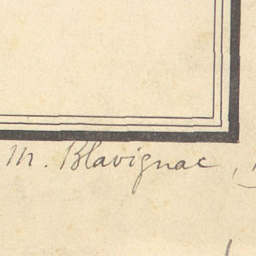 M. Blavignac,